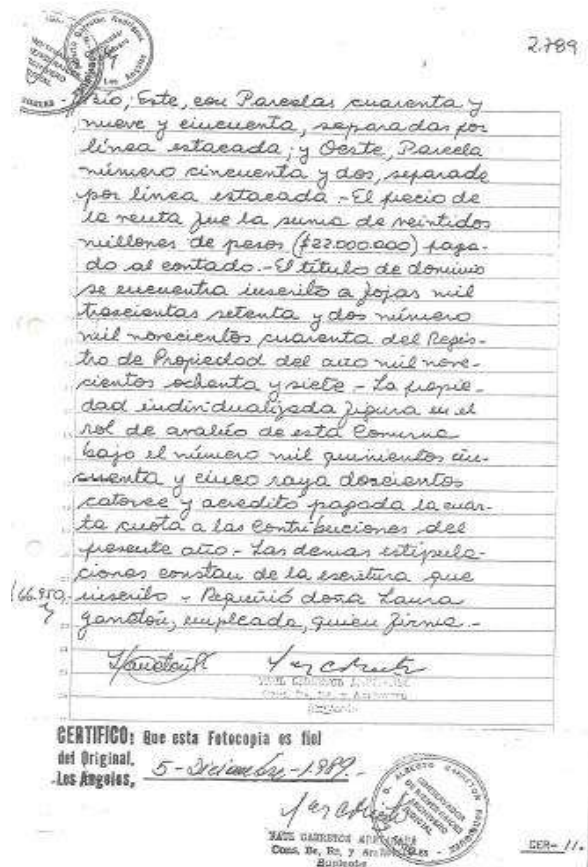 2.789
rio; Este, con Parcelas cuarenta y
nueve y cincuenta, separadas por
línea estacada; y Oeste, Parcela
número cincuenta y dos, separada
por línea estacada.- El precio de
la venta fue la suma de veintidos
millones de pesos ($22.000.000) paga-
do al contado.- El título de dominio
se encuentra inscrito a fojas mil
trescientas setenta y dos número
mil novecientos cuarenta del Regis-
tro de Propiedad del año mil nove-
cientos ochenta y siete - La propie-
dad individualizada figura en el
rol de avalúo de esta Comuna
bajo el número mil quinientos cin-
cuenta y cinco raya doscientos
catorce y acredito pagada la cuar-
ta cuota a las Contribuciones del
presente año.- Las demas estipula-
ciones constan de la escritura que
166.950.- inscribo - Requirió doña Laura
empleada, quien firma.-
CERTIFICO: Que esta Fotocopia es fiel
del Original.
Los Angeles, 5-Diciembre-1989.-
D. ALBERTO GARRETON
CONSERVADOR
DE BIENES RAICES
ARCHIVERO
JUDICIAL
Cons. Bs. Rs. y
Suplente
CER- 11.